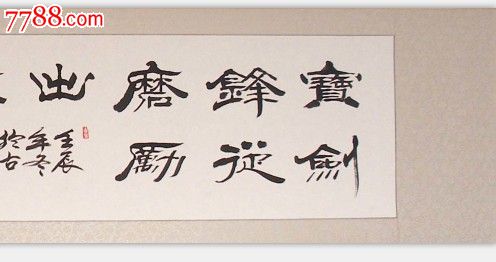 7788.com
寶劍
鋒從
磨勵
出
壬辰
年冬
於古